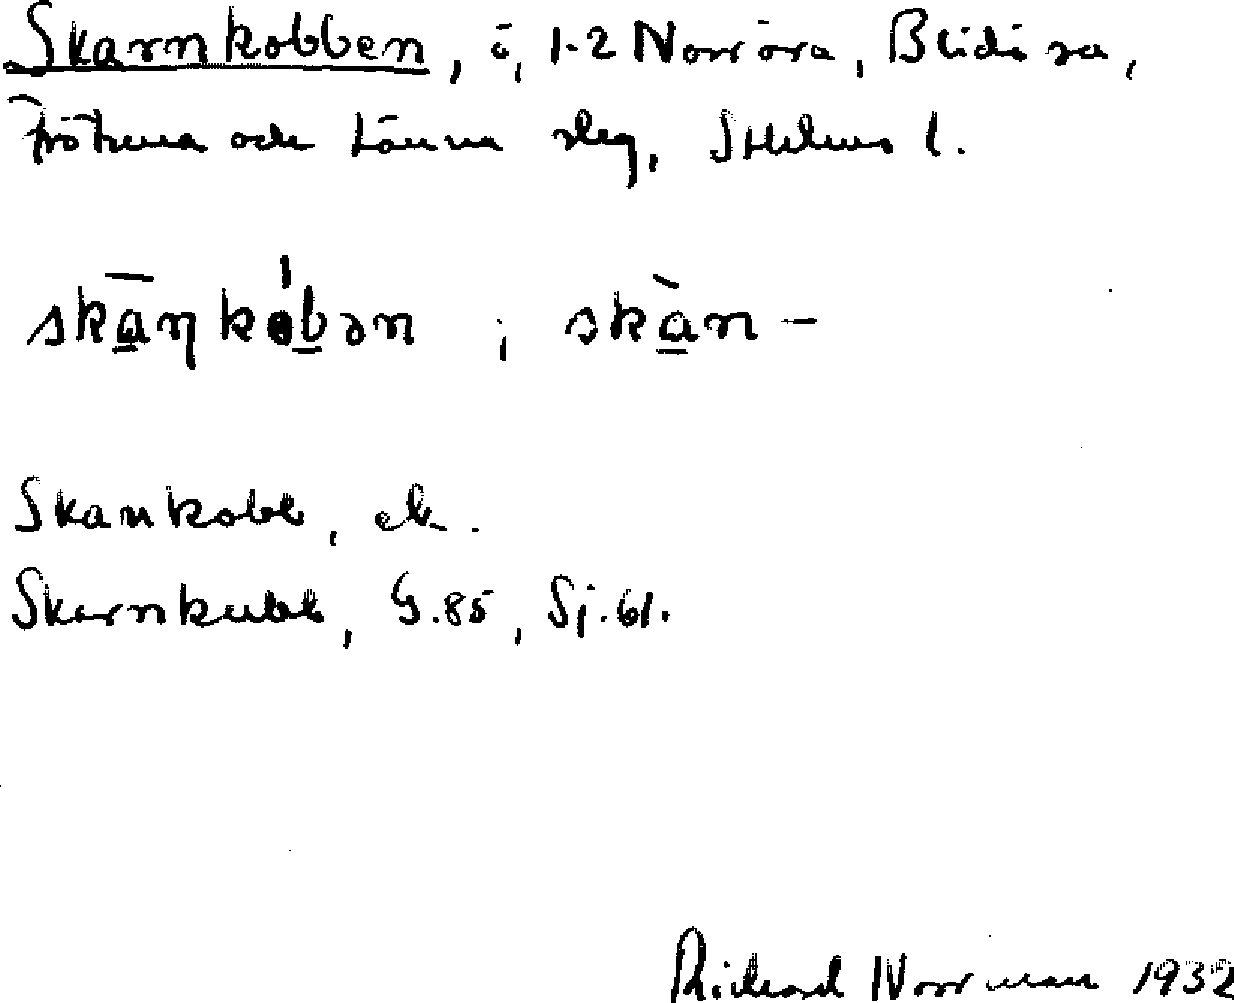 Skarnkobben, ö, 1-2 Norröra, Blidö sn,
Frötuna och Länna slg, Sthlms l.
skā̱ŋkób̠ən ; skà̱n-
Skankobb, ek.
Skarnkubb, G.85, Sj.61.
Richard Norrman 1932